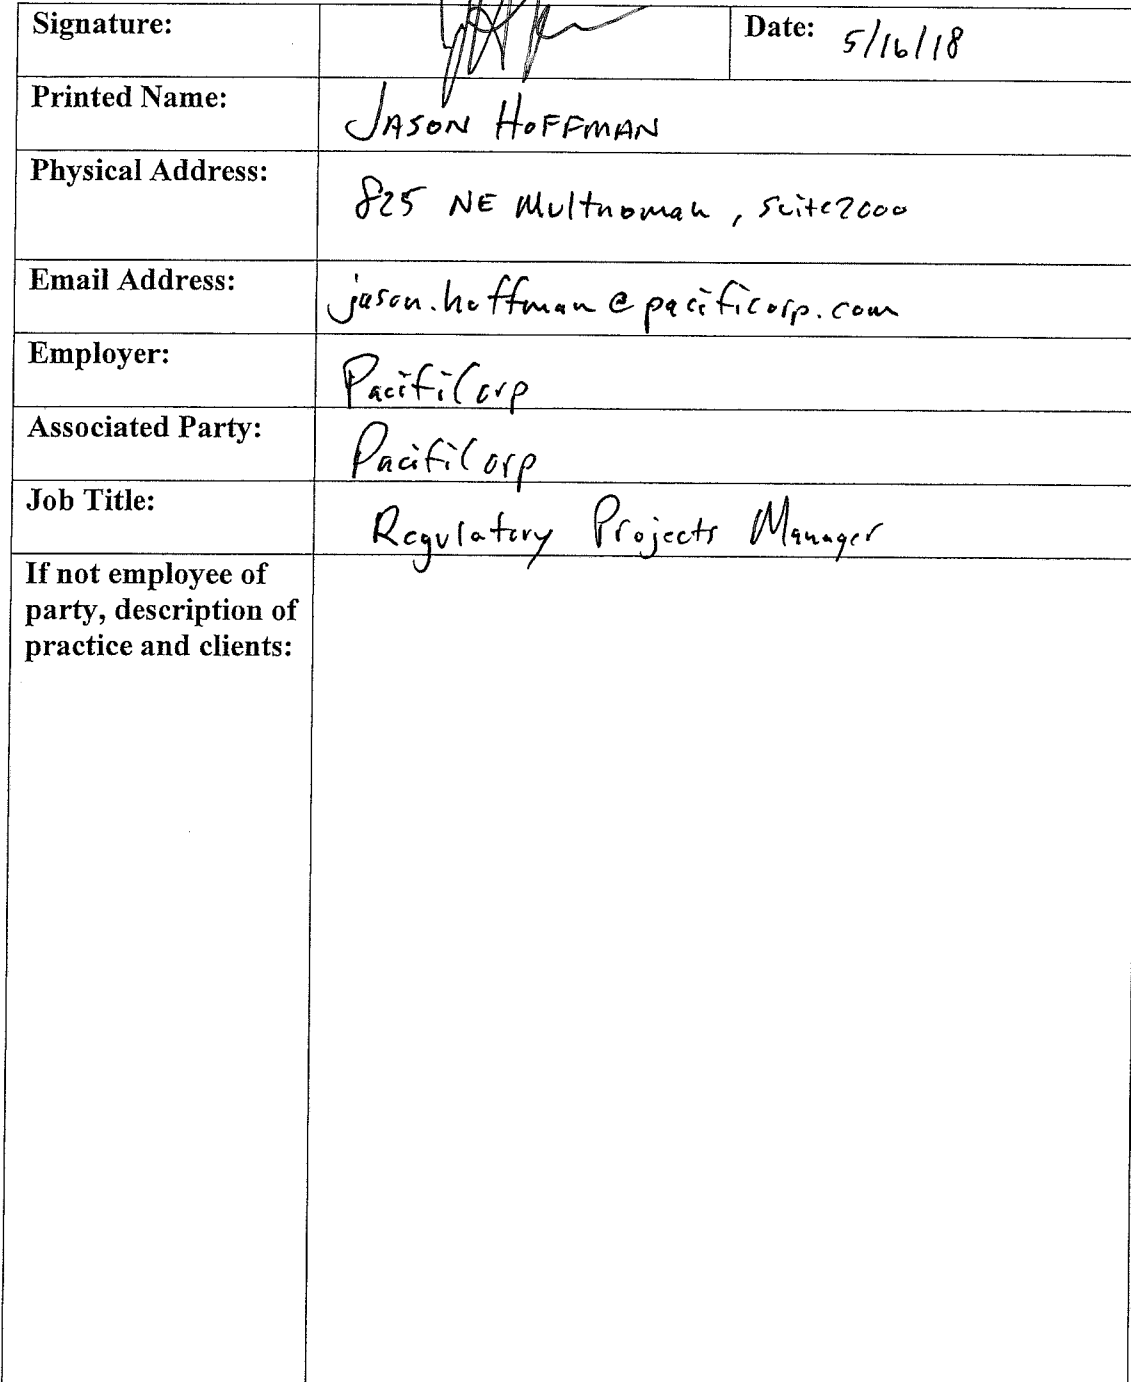 Signature:
Date: 5/16/18
Printed Name: JASON HOFFMAN
Physical Address: 825 NE Multnomah, suite 2000
Email Address: jason.hoffman@pacificorp.com
Employer: PacifiCorp
Associated Party: PacifiCorp
Job Title: Regulatory Projects Manager
If not employee of
party, description of
practice and clients: